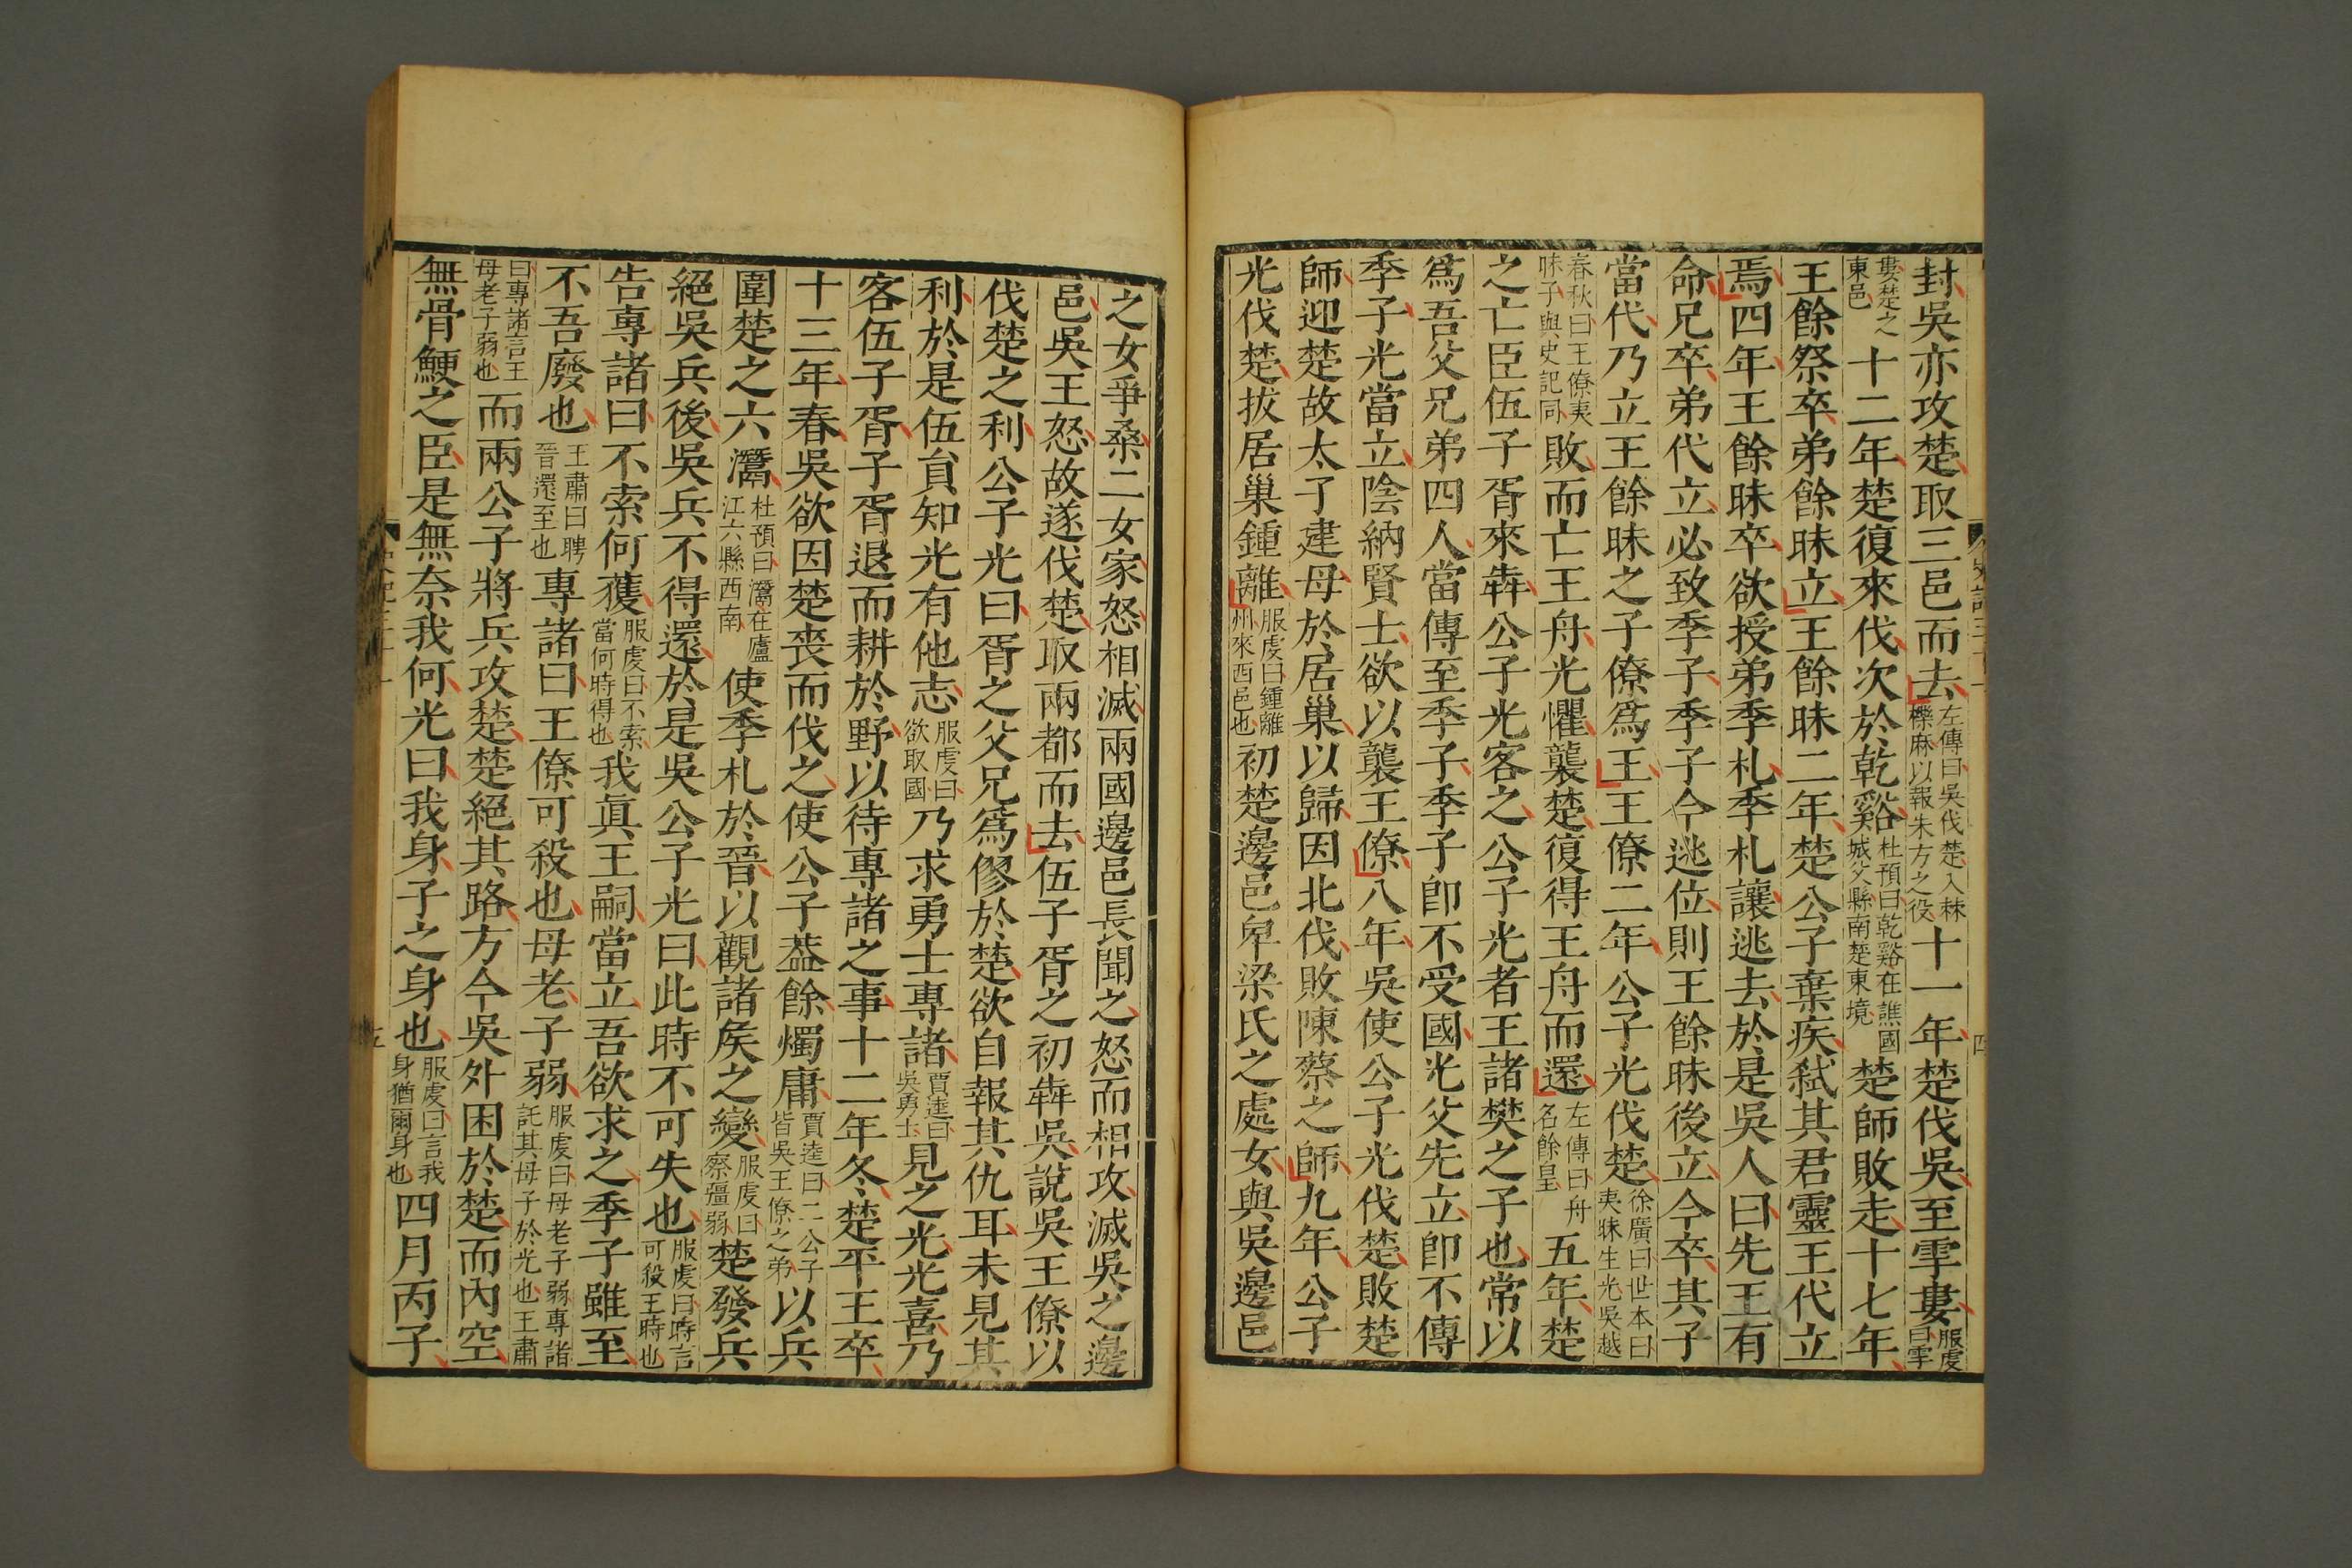 封吳亦攻楚取三邑而去左傳曰吳伐楚入棘櫟麻以報朱方之役十一年楚伐吳至雩婁服虔曰雩
婁楚之東邑十二年楚復來伐次於乾谿杜預曰乾谿在譙國城父縣南楚東境楚師敗走十七年
王餘祭卒弟餘昧立王餘昧二年楚公子棄疾弑其君靈王代立
焉四年王餘昧卒欲授弟季札季札讓逃去於是吳人曰先王有
命兄卒弟代立必致季子季子今逃位則王餘昧後立今卒其子
當代乃立王餘昧之子僚爲王王僚二年公子光伐楚徐廣曰世本曰夷昧生光吳越
春秋曰王僚夷昧子與史記同敗而亡王舟光懼襲楚復得王舟而還左傳曰舟名餘皇五年楚
之亡臣伍子胥來犇公子光客之公子光者王諸樊之子也常以
爲吾父兄弟四人當傳至季子季子卽不受國光父先立卽不傳
季子光當立陰納賢士欲以襲王僚八年吳使公子光伐楚敗楚
師迎楚故太子建母於居巢以歸因北伐敗陳蔡之師九年公子
光伐楚拔居巢鍾離服虔曰鍾離州來西邑也初楚邊邑卑梁氏之處女與吳邊邑
史記三十一
四
之女爭桑二女家怒相滅兩國邊邑長聞之怒而相攻滅吳之邊
邑吳王怒故遂伐楚取兩都而去伍子胥之初犇吳說吳王僚以
伐楚之利公子光曰胥之父兄爲僇於楚欲自報其仇耳未見其
利於是伍員知光有他志服虔曰欲取國乃求勇士專諸賈逵曰吳勇士見之光光喜乃
客伍子胥子胥退而耕於野以待專諸之事十二年冬楚平王卒
十三年春吳欲因楚喪而伐之使公子葢餘燭庸賈逵曰二公子皆吳王僚之弟以兵
圍楚之六灊杜預曰灊在廬江六縣西南使季札於晉以觀諸矦之變服虔曰察彊弱楚發兵
絕吳兵後吳兵不得還於是吳公子光曰此時不可失也服虔曰時言可殺王時也
告專諸曰不索何獲服虔曰不索當何時得也我眞王嗣當立吾欲求之季子雖至
不吾廢也王肅曰聘晉還至也專諸曰王僚可殺也母老子弱服虔曰母老子弱專諸託其母子於光也王肅
曰專諸言王母老子弱也而兩公子將兵攻楚楚絕其路方今吳外困於楚而內空
無骨鯁之臣是無奈我何光曰我身子之身也服虔曰言我身猶爾身也四月丙子
史記三十一
五